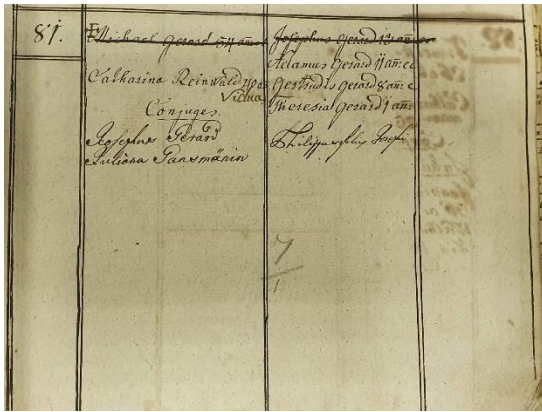 81.
Michael Gerard 54 an̄
Catharina Reinwald 40 an̄
Vidua
Conjuges.
Josephus Gerard
Juliana Gansmänin
Josephus Gerard 13 an̄
Adamus Gerard 11 an̄: cc
Gertrudis Gerard 8 an̄: c
Theresia Gerard 1 an̄:
Philippus filius Josephi
7
1
82